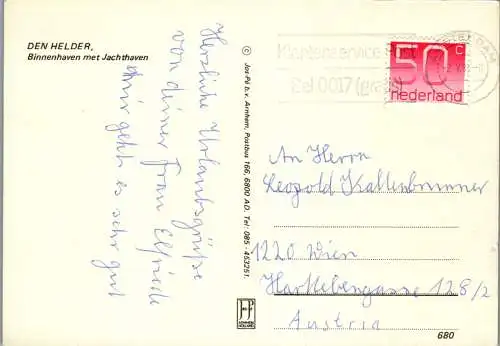 DEN HELDER,
Binnenhaven met Jachthaven
Herzliche Urlaubsgrüße
von deiner Frau Elfriede
mir geht es sehr gut
© Jos-Pé b.v. Arnhem, Postbus 166, 6800 AD. Tel: 085 - 453251.
Klantenservice Post
Bel 0017 (gratis)
50 c
nederland
An Herrn
Leopold Kaltenbrunner
1220 Wien
Harklebengasse 128/2
Austria
ARNHEM
HOLLAND
680